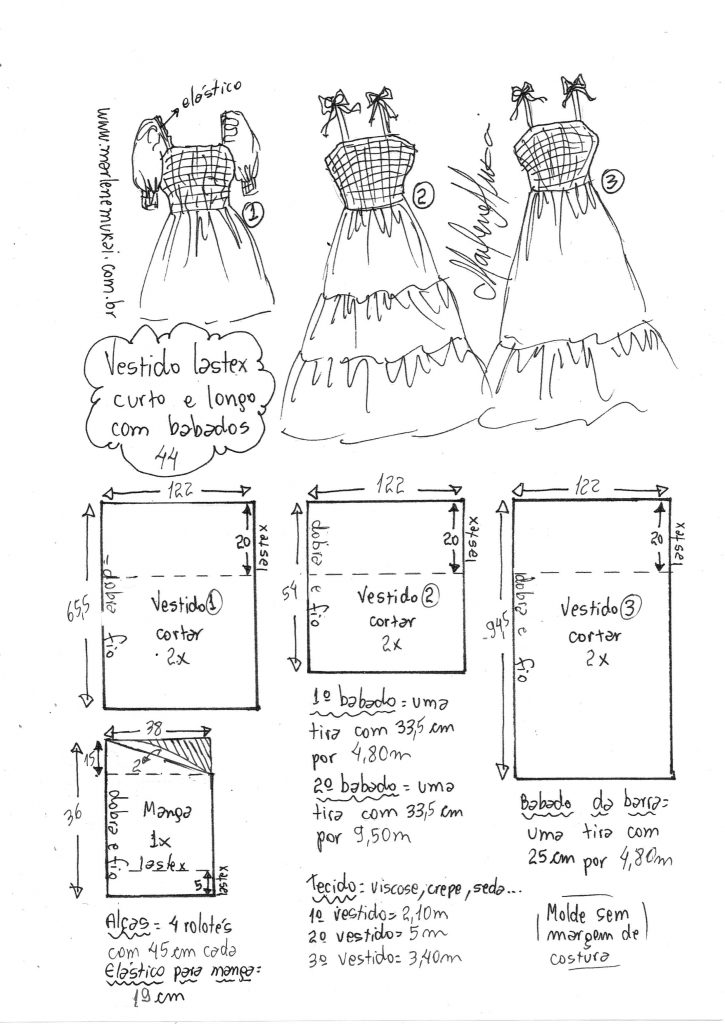 elástico
www.marlenemukai.com.br
1
2
3
Marlene Mukai
Vestido lastex
curto e longo
com babados
44
122
20
lastex
65,5
dobra e fio
Vestido 1
cortar
2x
122
20
lastex
54
dobra e fio
Vestido 2
cortar
2x
122
20
lastex
94,5
dobra e fio
Vestido 3
cortar
2x
1º babado = uma
tira com 33,5 cm
por 4,80m
2º babado = uma
tira com 33,5 cm
por 9,50m
Babado da barra=
uma tira com
25cm por 4,80m
38
15
2
36
dobra e fio
Manga
1x
lastex
5
lastex
Alças = 4 rolotês
com 45cm cada
Elástico para manga=
19cm
Tecido= viscose, crepe, seda...
1º vestido= 2,10m
2º vestido= 5m
3º vestido= 3,40m
Molde sem
margem de
costura